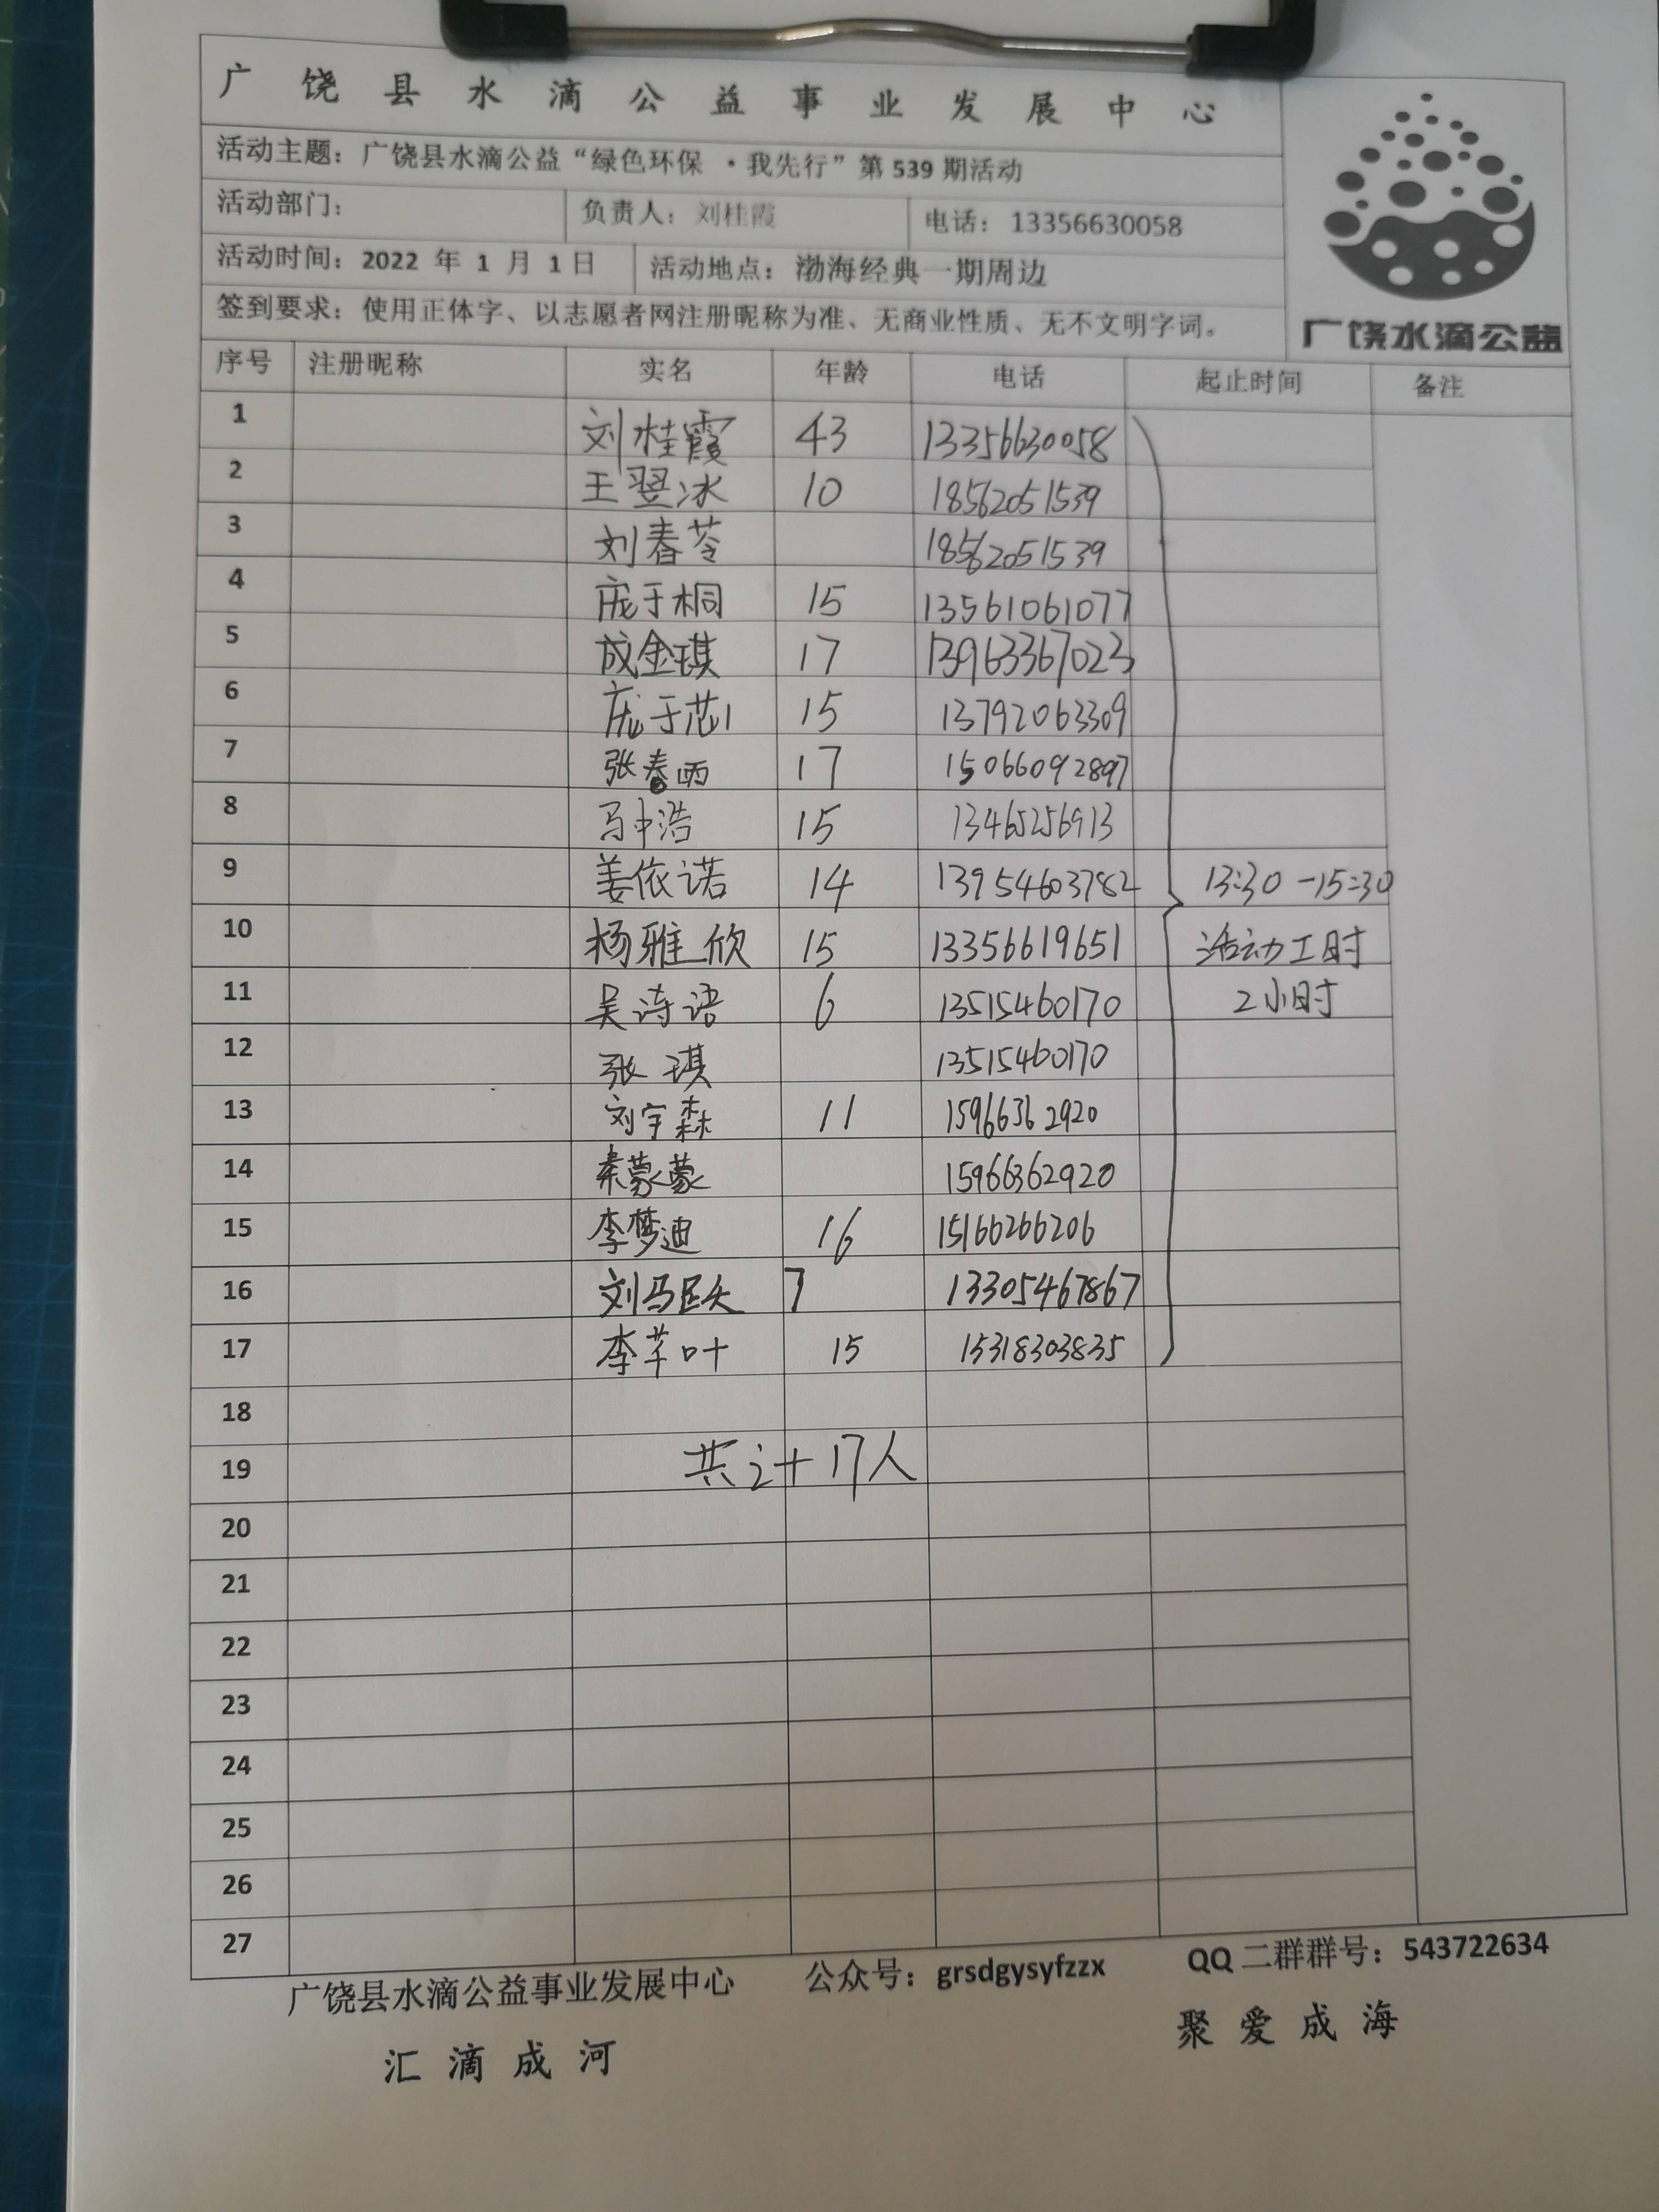 广饶县水滴公益事业发展中心
活动主题：广饶县水滴公益“绿色环保 ·我先行”第 539 期活动
活动部门： 负责人：刘桂霞 电话：13356630058
活动时间：2022 年 1 月 1 日 活动地点：渤海经典一期周边
签到要求：使用正体字、以志愿者网注册昵称为准、无商业性质、无不文明字词。
广饶水滴公益
序号 注册昵称 实名 年龄 电话 起止时间 备注
1 刘桂霞 43 13356630058
2 王翌冰 10 18562051539
3 刘春苓 18562051539
4 庞于桐 15 13561061077
5 成金琪 17 13963367023
6 庞于芯 15 13792063309
7 张春雨 17 15066092897
8 马中浩 15 13465256913
9 姜依诺 14 13954603782 13:30-15:30
10 杨雅欣 15 13356619651 活动工时
11 吴诗语 6 13515460170 2小时
12 张琪 13515460170
13 刘宇森 11 15966362920
14 秦蒙蒙 15966362920
15 李梦迪 16 15166266206
16 刘马 7 13305467867
17 李芊叶 15 15318303835
18
19 共计17人
20
21
22
23
24
25
26
27
广饶县水滴公益事业发展中心 公众号：grsdgysyfzzx QQ 二群群号：543722634
汇滴成河 聚爱成海